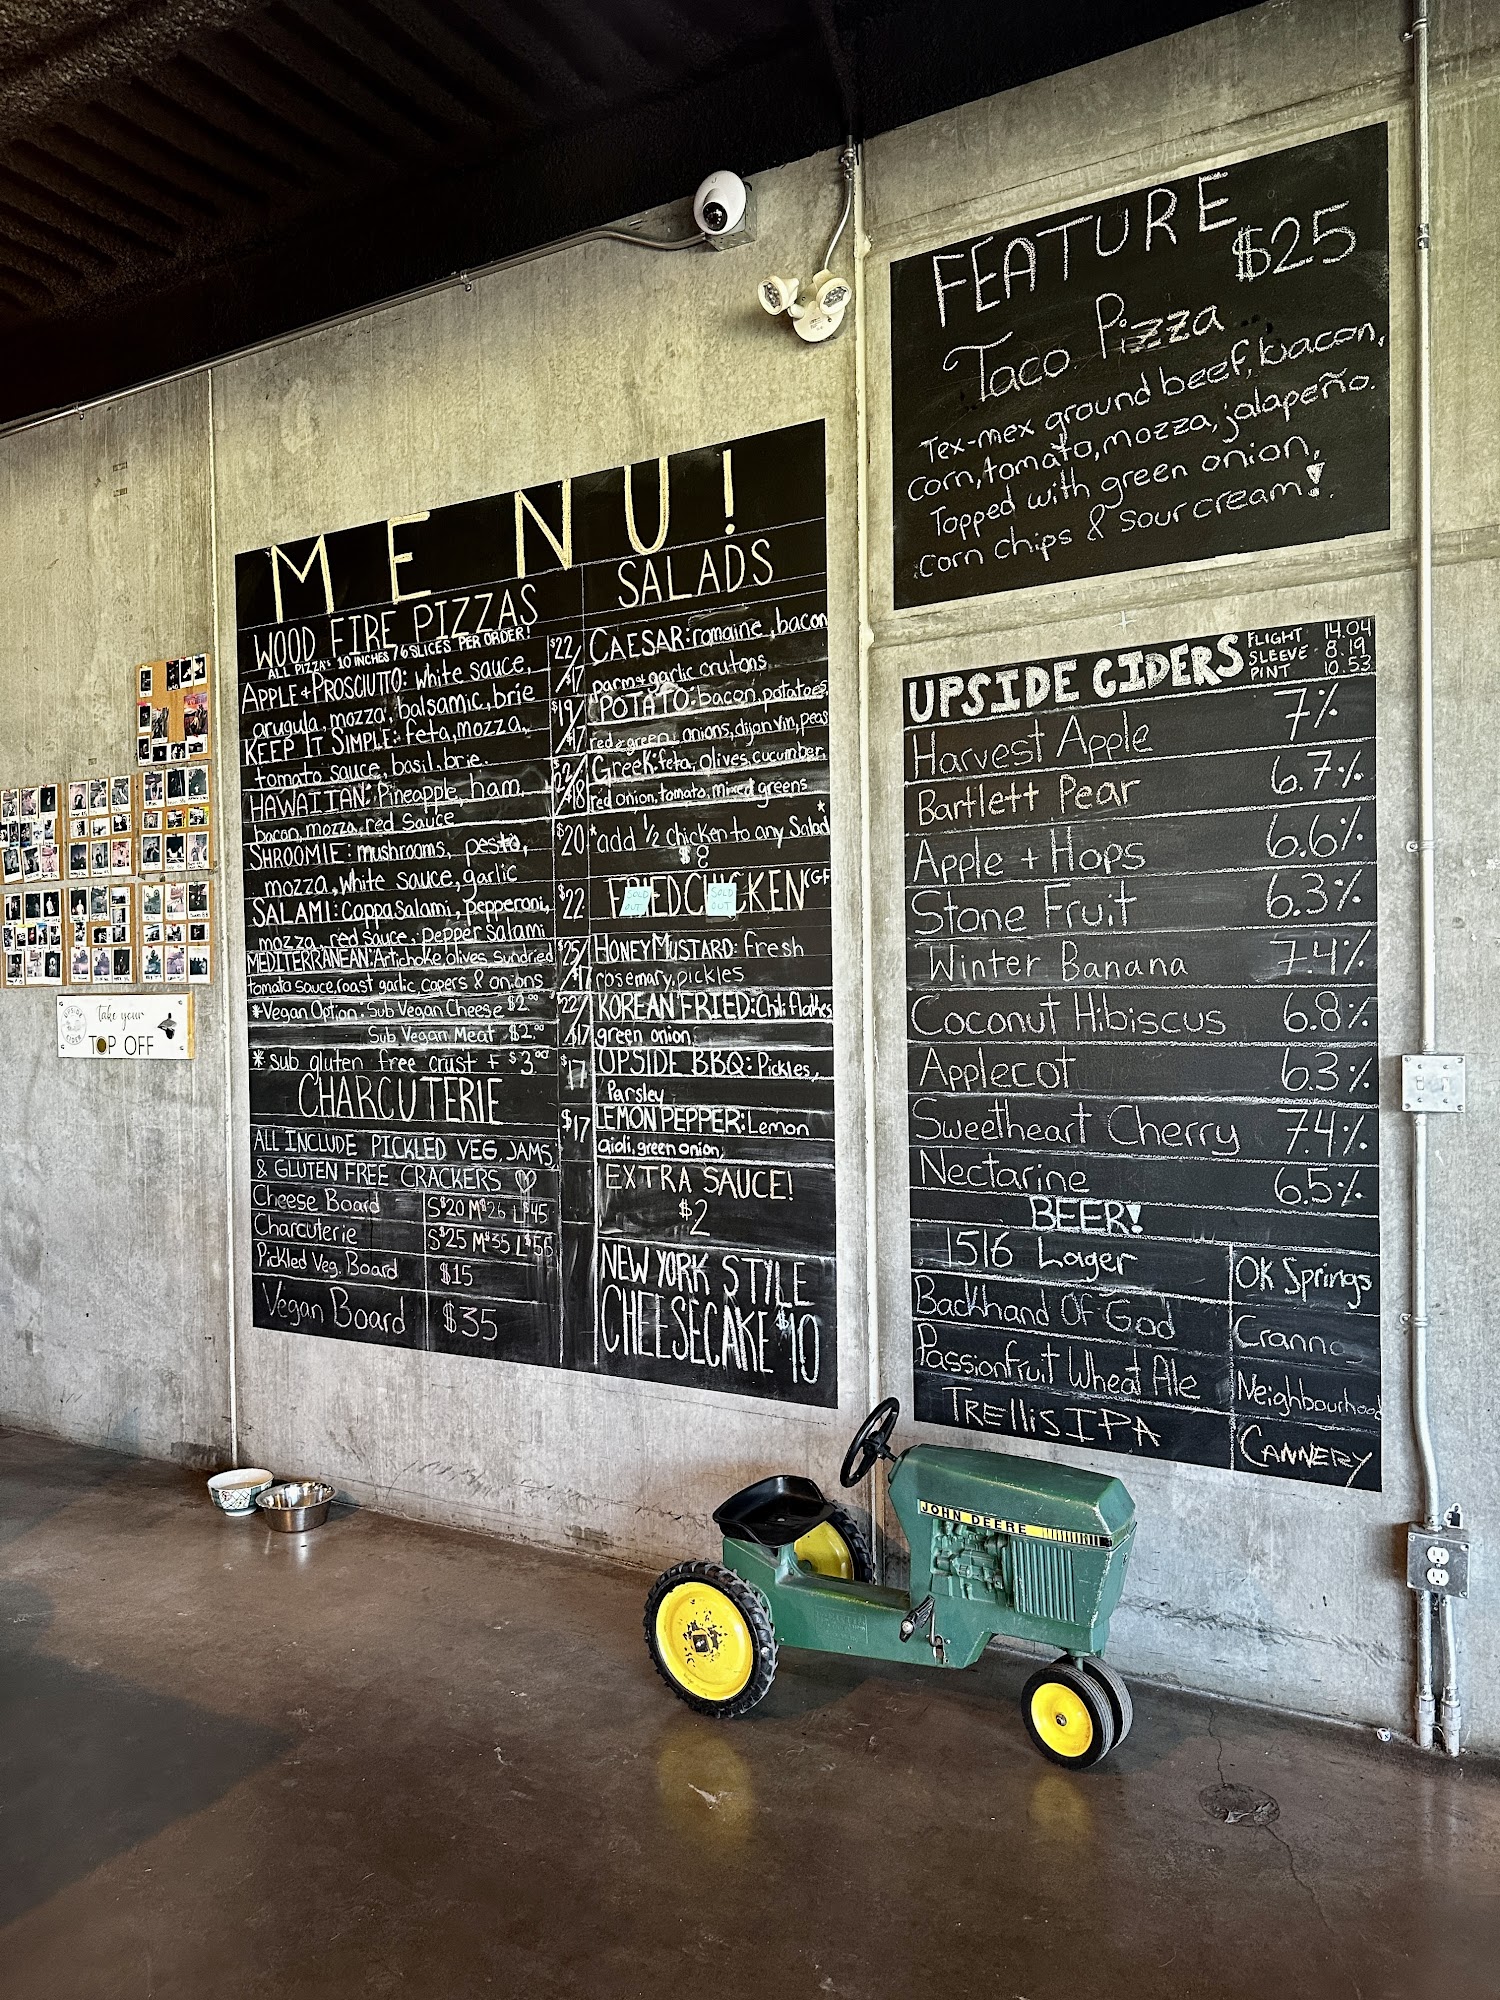 FEATURE
$25
Taco Pizza
Tex-mex ground beef, bacon,
corn, tomato, mozza, jalapeño.
Topped with green onion,
corn chips & sour cream!
MENU!
WOOD FIRE PIZZAS
ALL PIZZA'S 10 INCHES / 6 SLICES PER ORDER!
APPLE + PROSCIUTO: White sauce,
arugula, mozza, balsamic, brie
KEEP IT SIMPLE: feta, mozza,
tomato sauce, basil, brie.
HAWAIIAN: Pineapple, ham,
bacon, mozza, red sauce
SHROOMIE: mushrooms, pesto,
mozza, white sauce, garlic
SALAMI: Coppa salami, pepperoni,
mozza, red sauce, pepper salami
MEDITERRANEAN: Artichoke, olives, sundried
tomato sauce, roast garlic, capers & onions
*Vegan Option. Sub Vegan Cheese $2.00
Sub Vegan Meat $2.00
* sub gluten free crust + $3.00
CHARCUTERIE
ALL INCLUDE PICKLED VEG, JAMS,
& GLUTEN FREE CRACKERS
Cheese Board S $20 M $26 L $45
Charcuterie S $25 M $35 L $55
Pickled Veg. Board $15
Vegan Board $35
$22/
$17
$19/
$17
$22/
$18
$20
$22
$25/
$17
$22/
$17
$17
$17
SALADS
CAESAR: romaine, bacon
parm & garlic crutons
POTATO: bacon, potatoes,
red & green onions, dijon vin, peas
Greek: feta, olives, cucumber,
red onion, tomato, mixed greens
*add 1/2 chicken to any Salad*
$8
FRIED CHICKEN (GF
SOLD
OUT
SOLD
OUT
HONEY MUSTARD: Fresh
rosemary, pickles
KOREAN FRIED: Chili flakes
green onion,
UPSIDE BBQ: Pickles,
Parsley
LEMON PEPPER: Lemon
aioli, green onion,
EXTRA SAUCE!
$2
NEW YORK STYLE
CHEESECAKE $10
UPSIDE CIDERS
FLIGHT 14.04
SLEEVE 8.19
PINT 10.53
Harvest Apple 7%
Bartlett Pear 6.7%
Apple + Hops 6.6%
Stone Fruit 6.3%
Winter Banana 7.4%
Coconut Hibiscus 6.8%
Applecot 6.3%
Sweetheart Cherry 7.4%
Nectarine 6.5%
BEER!
1516 Lager OK Springs
Backhand Of God Cranno
Passionfruit Wheat Ale Neighbourhood
TRELLIS IPA CANNERY
take your
TOP OFF
UPSIDE
CIDER
JOHN DEERE